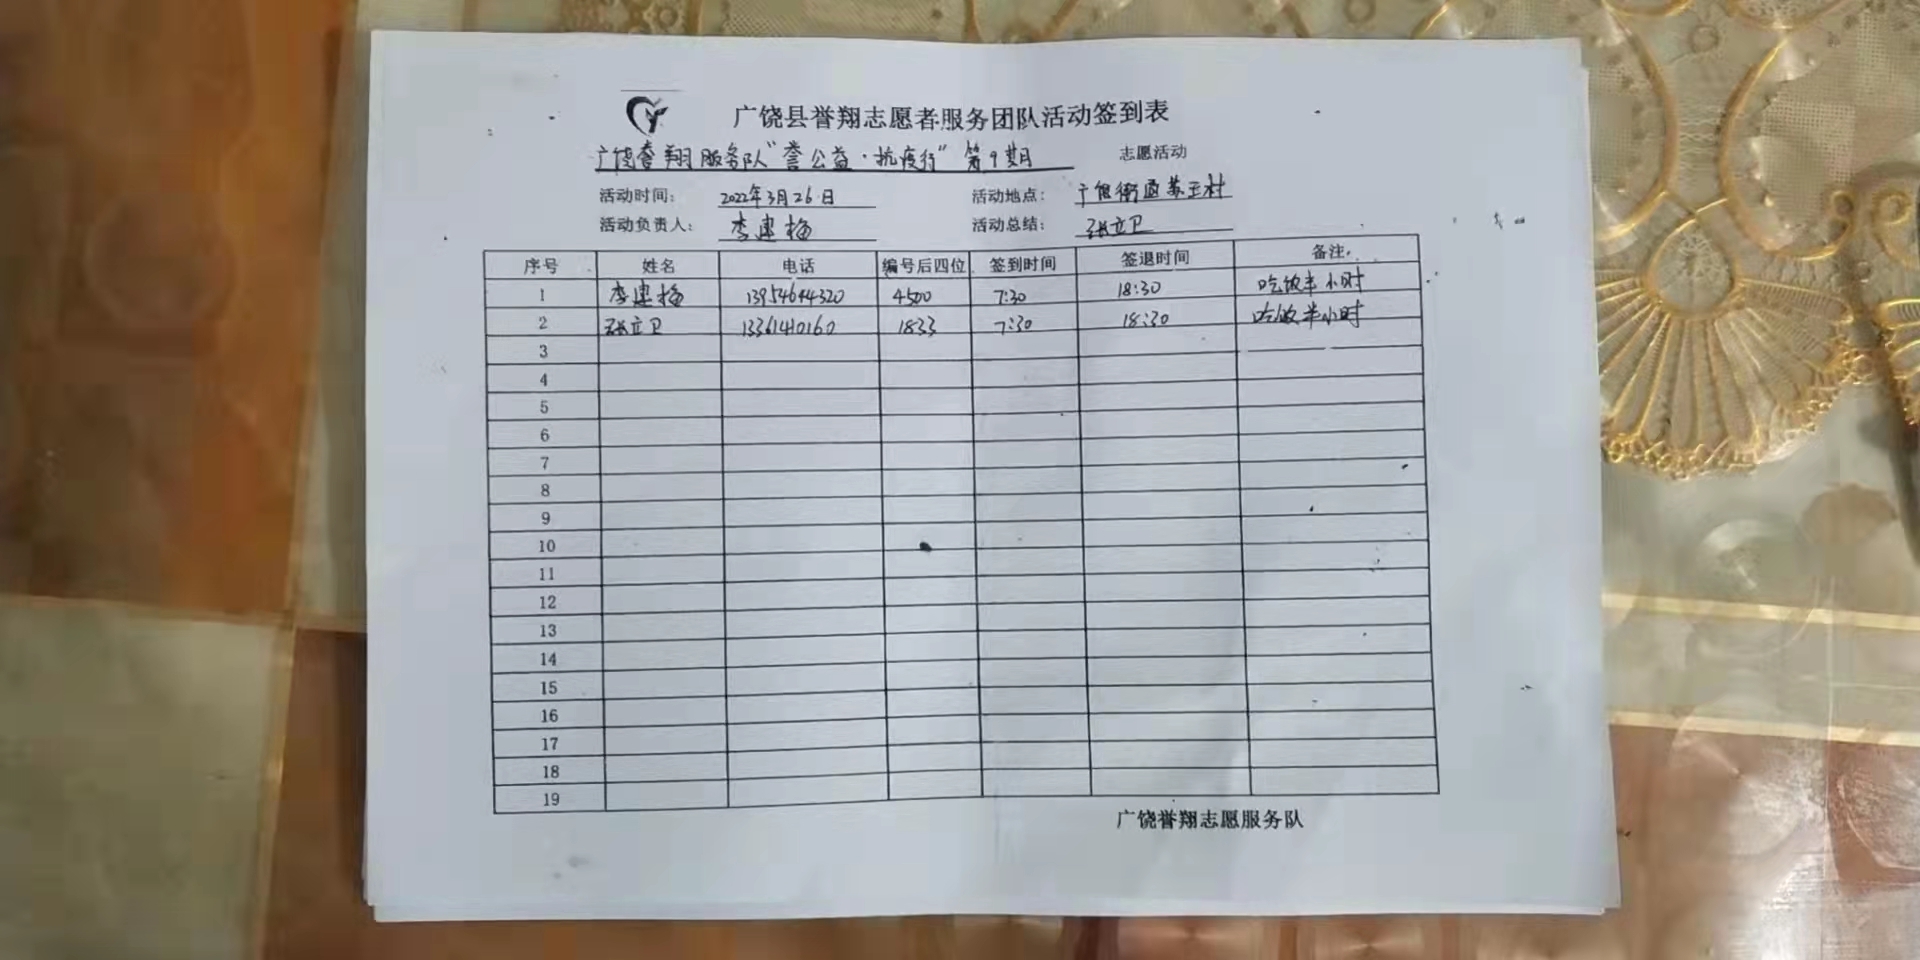 广饶县誉翔志愿者服务团队活动签到表
广饶誉翔服务队"誉公益·抗疫行"第9期 志愿活动
活动时间: 2022年3月26日 活动地点: 广饶街道苏王村
活动负责人: 李建梅 活动总结: 张立卫
序号 姓名 电话 编号后四位 签到时间 签退时间 备注
1 李建梅 13954644320 4500 7:30 18:30 吃饭半小时
2 张立卫 13361410160 1833 7:30 18:30 吃饭半小时
3
4
5
6
7
8
9
10
11
12
13
14
15
16
17
18
19
广饶誉翔志愿服务队